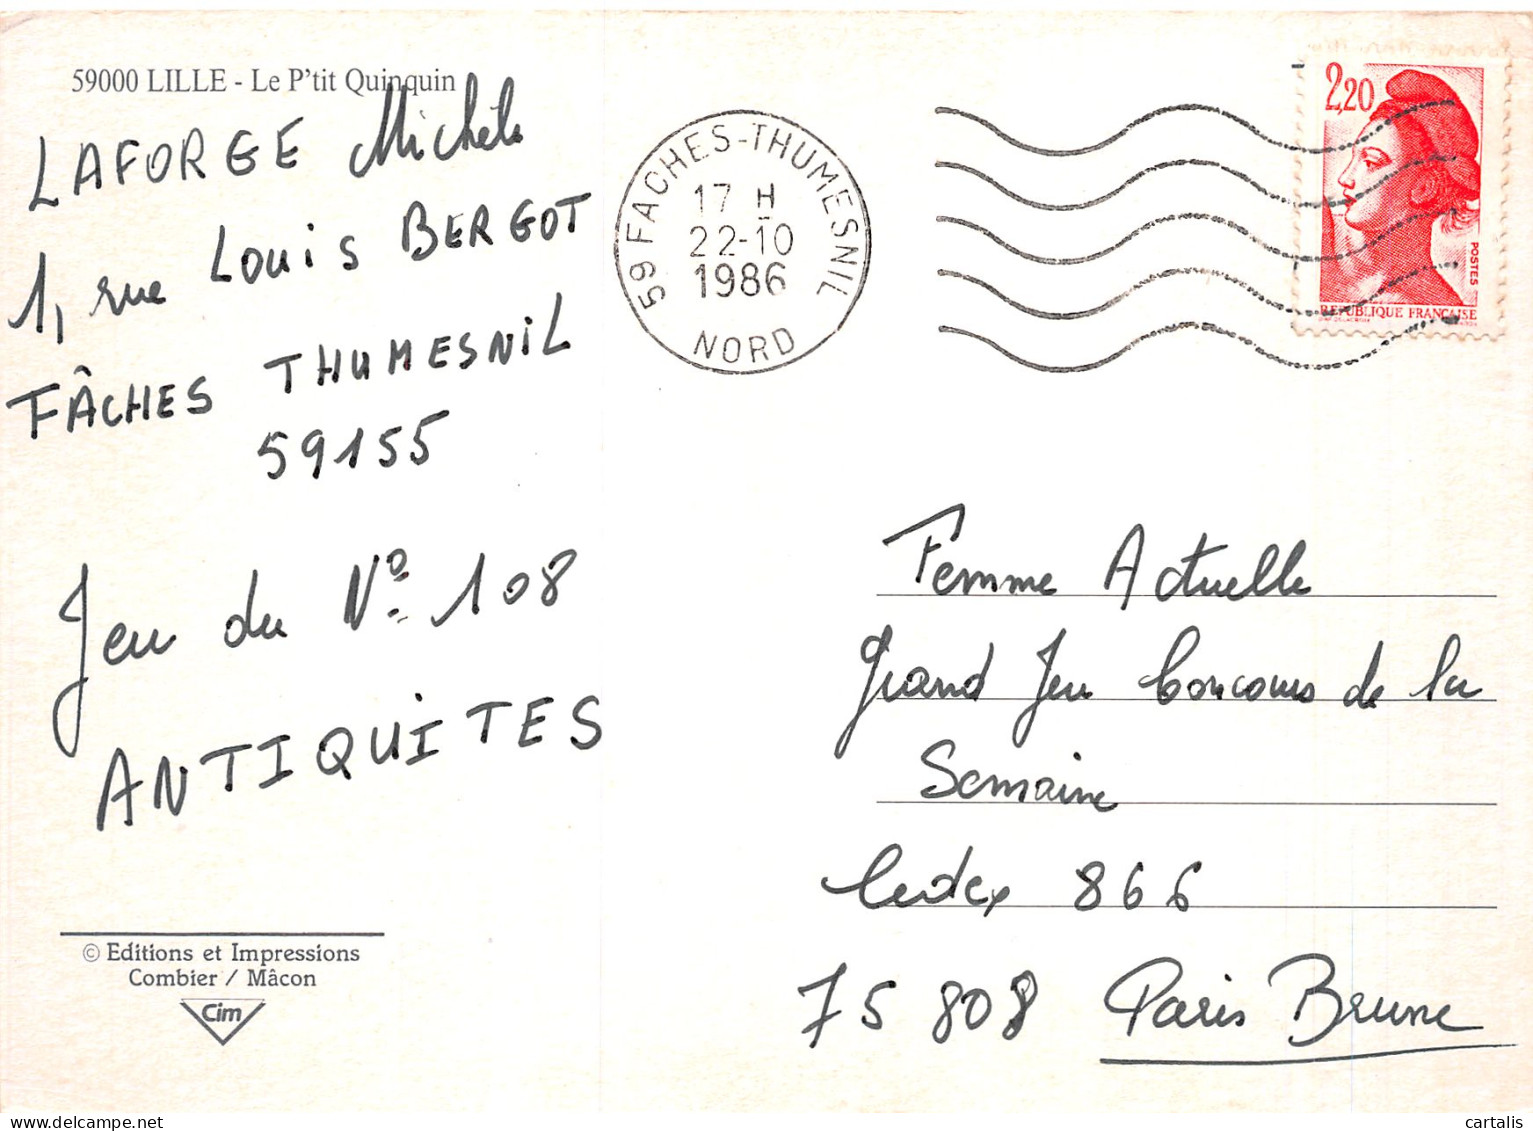 59000 LILLE - Le P'tit Quinquin
LAFORGE Michèle
1, rue Louis BERGOT
FÂCHES THUMESNIL
59155
Jeu du Nº 108
ANTIQUITES
© Editions et Impressions
Combier / Mâcon
Cim
59 FACHES-THUMESNIL
17 H
22-10
1986
NORD
2,20
POSTES
REPUBLIQUE FRANÇAISE
Femme Actuelle
Grand Jeu Concours de la
Semaine
Cedex 866
75 808 Paris Brune
cartalis
delcampe.net